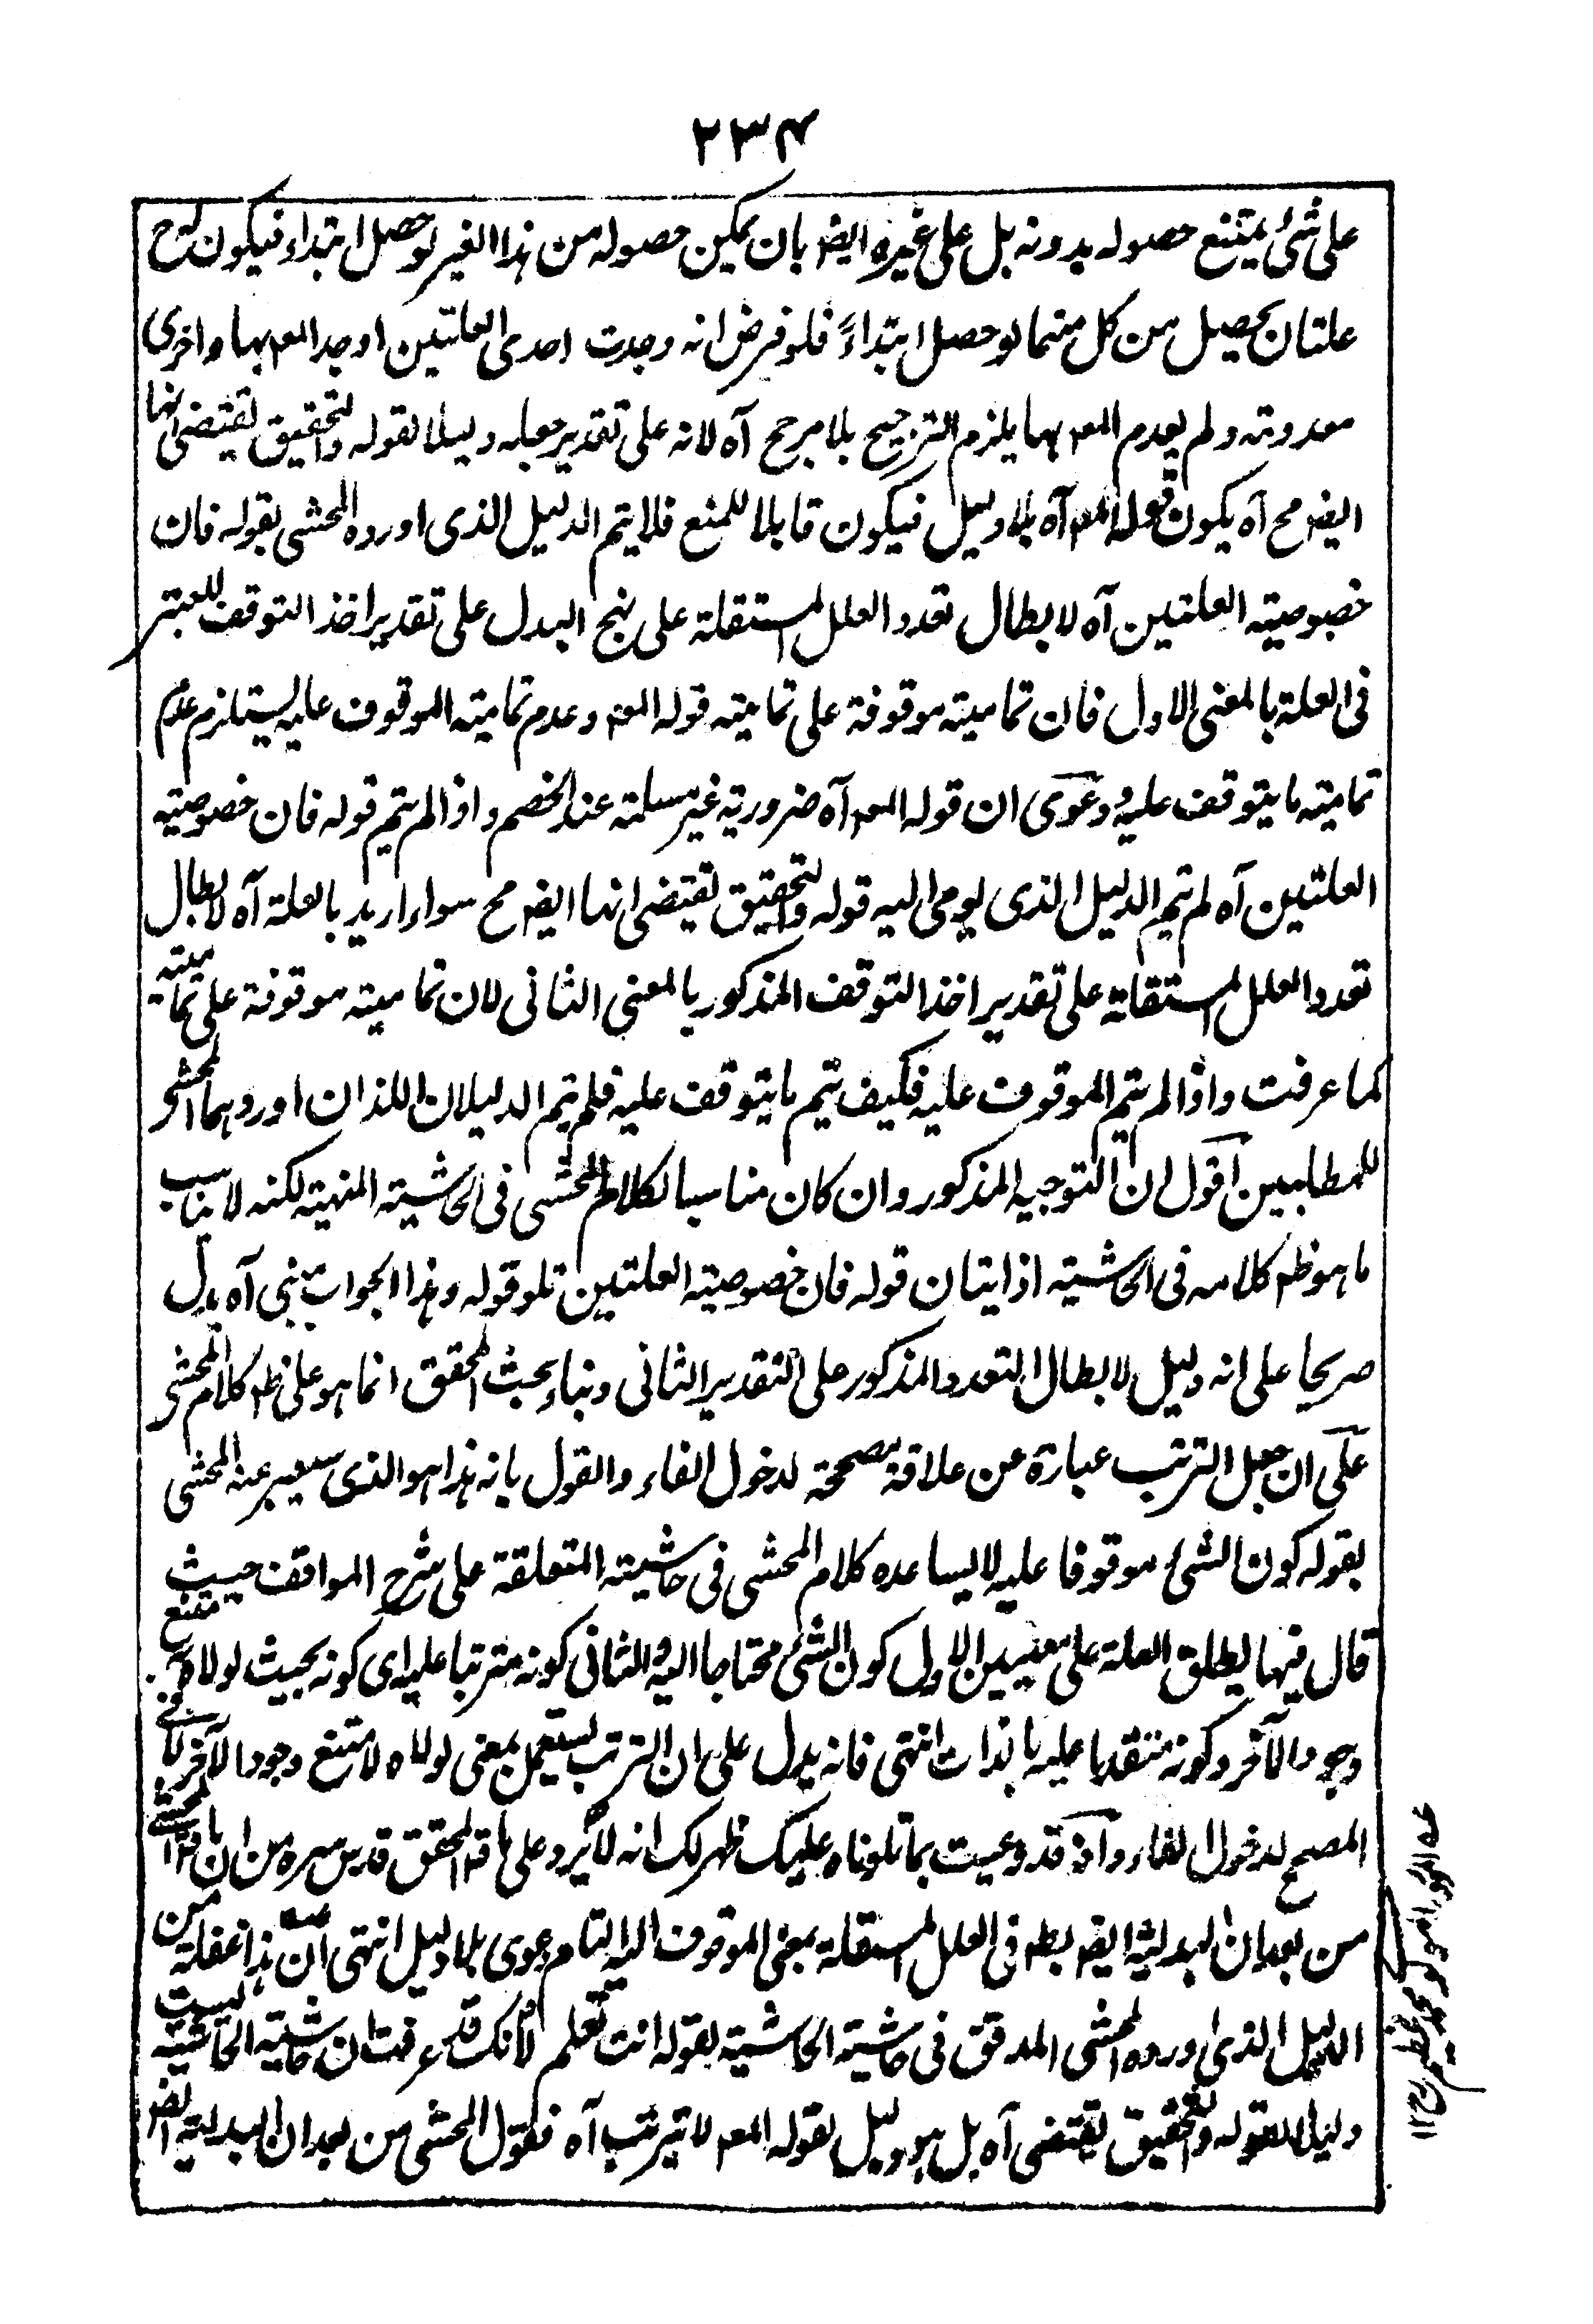 ٢٣٤
على شئ يمتنع حصوله بدونه بل على غيره ايضر بان يمكن حصوله من هذا الغير لو حصل ابتداء فيكون لہ ح
علتان يحصل من كل منهما لو حصل ابتداءً فلو فرض انه وجدت احدى العلتين اوجد المعه بها واخرى
معدومة ولم يعدم المعه بهما يلزم الترجيح بلا مرجح آه لانه على تقدير جعله دليلا لقوله والتحقيق يقتضى انها
ايضر مح آه يكون قوله المعه آه بلا دليل فيكون قابلا للمنع فلا يتم الدليل الذى اورده المحشى بقوله فان
خصوصية العلتين آه لابطال تعدد العلل المستقلة على نهج البدل على تقدير اخذ التوقف المعتبر
فى العلة بالمعنى الاول فان تماميته موقوفة على تمامية قوله المعه وعدم تمامية الموقوف عليه يستلزم عدم
تمامية ما يتوقف عليه ودعوى ان قوله المعه آه ضرورية غير مسلمة عند الخصم واذا لم يتم قوله فان خصوصية
العلتين آه لم يتم الدليل الذى يومى اليه قوله والتحقيق يقتضى انها ايضر مح سواء اريد بالعلة آه لابطال
تعدد العلل المستقلة على تقدير اخذ التوقف المذكور بالمعنى الثانى لان تماميته موقوفة على تماميته
كما عرفت واذا لم يتم الموقوف عليه فكيف يتم ما يتوقف عليه فلم يتم الدليلان اللذان اوردهما المحشى
للمطلبين اقول ان التوجيه المذكور وان كان مناسبا لكلام المحشى فى الحاشية المنهية لكنه لا يناسب
ما هو ظهر كلامه فى الحاشية اذ ايتان قوله فان خصوصية العلتين تلو قوله وهذا الجواب مبنى آه يدل
صريحا على انه دليل لابطال التعدد المذكور على التقدير الثانى وبناء بحث المحقق انما هو على ظهر كلام المحشى
على ان جعل الترتب عبارة عن علاقة مصححة لدخول الفاء والقول بانه هذا هو الذى سيعبر عنه المحشى
بقوله كون الشئ موقوفا عليه لا يساعده كلام المحشى فى حاشيته المتعلقة على شرح المواقف حيث
قال فيها يطلق العلة على معنيين الاول كون الشئ محتاجا اليه والثانى كونه مترتبا عليه اى كونه بحيث لولاه لامتنع
وجود الآخر وكونه متقدما عليه بالذات انتهى فانه يدل على ان الترتب يستعمل بمعنى لولاه لامتنع وجود الآخر لا بمعنى
المصحح لدخول الفاء واذ قد وعيت بما تلوناه عليك ظهر لك انه لا يرد على ما قال المحقق قدس سره من ان ما قال المحشى
من بعد ان البدلية ايضر بطه فى العلل المستقلة بمعنى الموقوف اليه التام دعوى بلا دليل انتهى ان هذا غفلة من
الدليل الذى اورده المحشى المدقق فى حاشية الحاشية بقوله انت تعلم لانك قد عرفت ان حاشية الحاشية ليست
دليلا لقوله والتحقيق يقتضى آه بل هو دليل لقوله المعه لا يترتب آه فقول المحشى من بعد ان البدلية ايضر